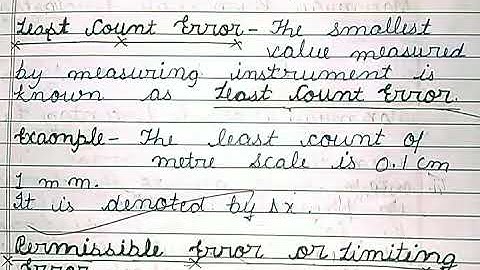 Least Count Error - The smallest
value measured
by measuring instrument is
known as Least Count Error.
Exaomple - The least count of
metre scale is 0.1 cm
1 mm.
It is denoted by Δx.
Permissible Error or Limiting
Error